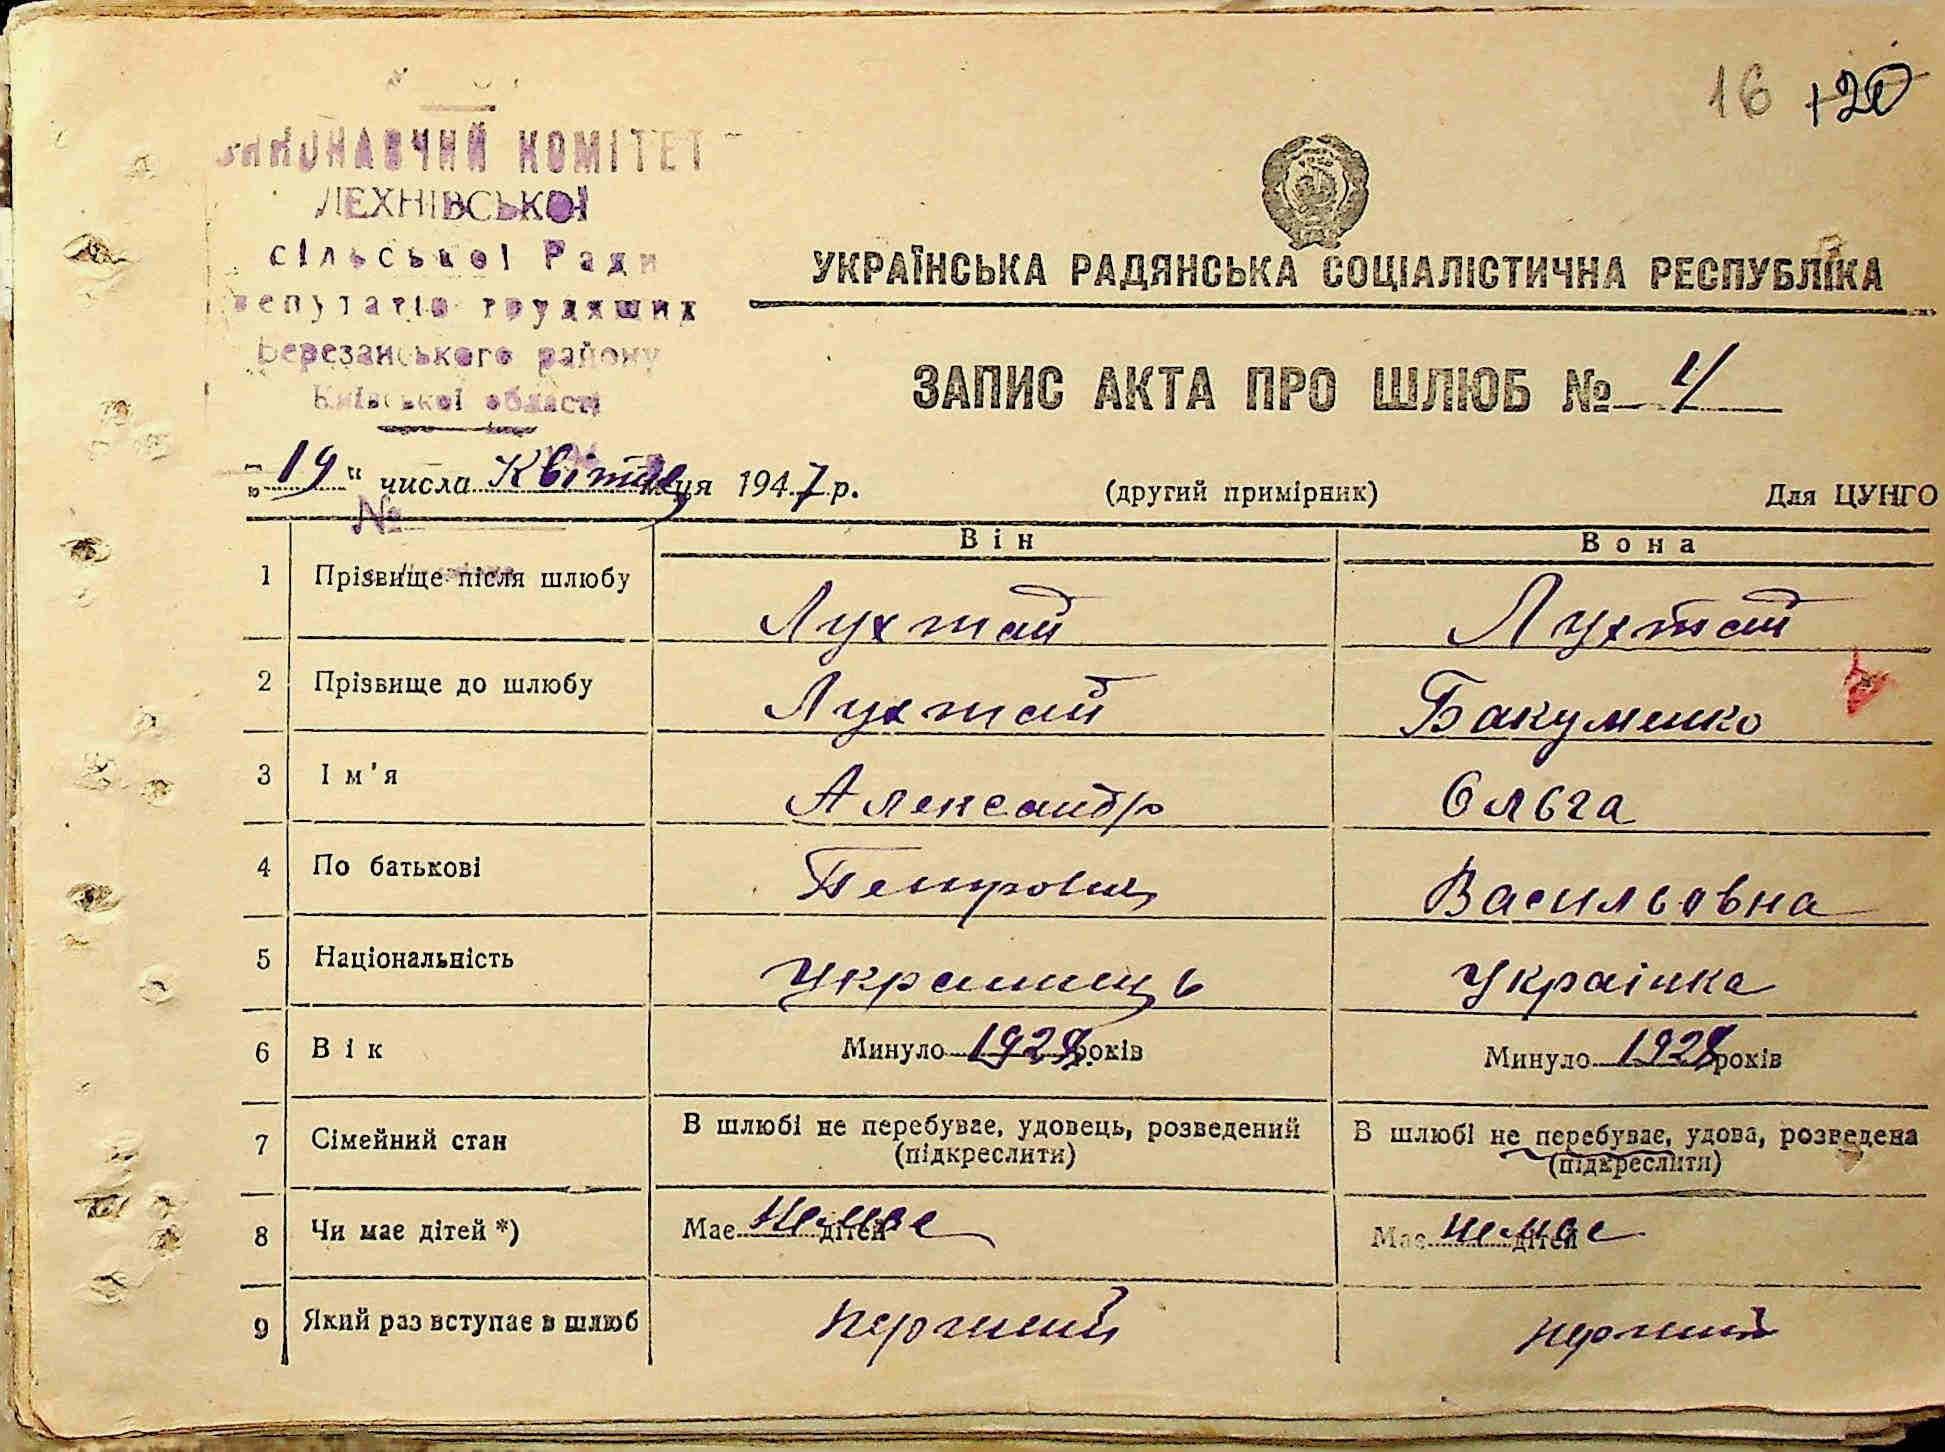 16 120
ВИКОНАВЧИЙ КОМІТЕТ
ЛЕХНІВСЬКОЇ
сільської Ради
депутатів трудящих
Березанського району
Київської області
УКРАЇНСЬКА РАДЯНСЬКА СОЦІАЛІСТИЧНА РЕСПУБЛІКА
ЗАПИС АКТА ПРО ШЛЮБ № 4
„19“ числа Квітня м-ця 1947 р.
(другий примірник)
Для ЦУНГО
№
Він Вона
1 Прізвище після шлюбу Лухтай Лухтай
2 Прізвище до шлюбу Лухтай Бакуменко
3 Ім'я Александр Ольга
4 По батькові Петрович Васильовна
5 Національність Українець Українка
6 Вік Минуло 192 років Минуло 1928 років
7 Сімейний стан В шлюбі не перебуває, удовець, розведений (підкреслити) В шлюбі не перебуває, удова, розведена (підкреслити)
8 Чи має дітей *) Має немає дітей Має немає дітей
9 Який раз вступає в шлюб перший перший